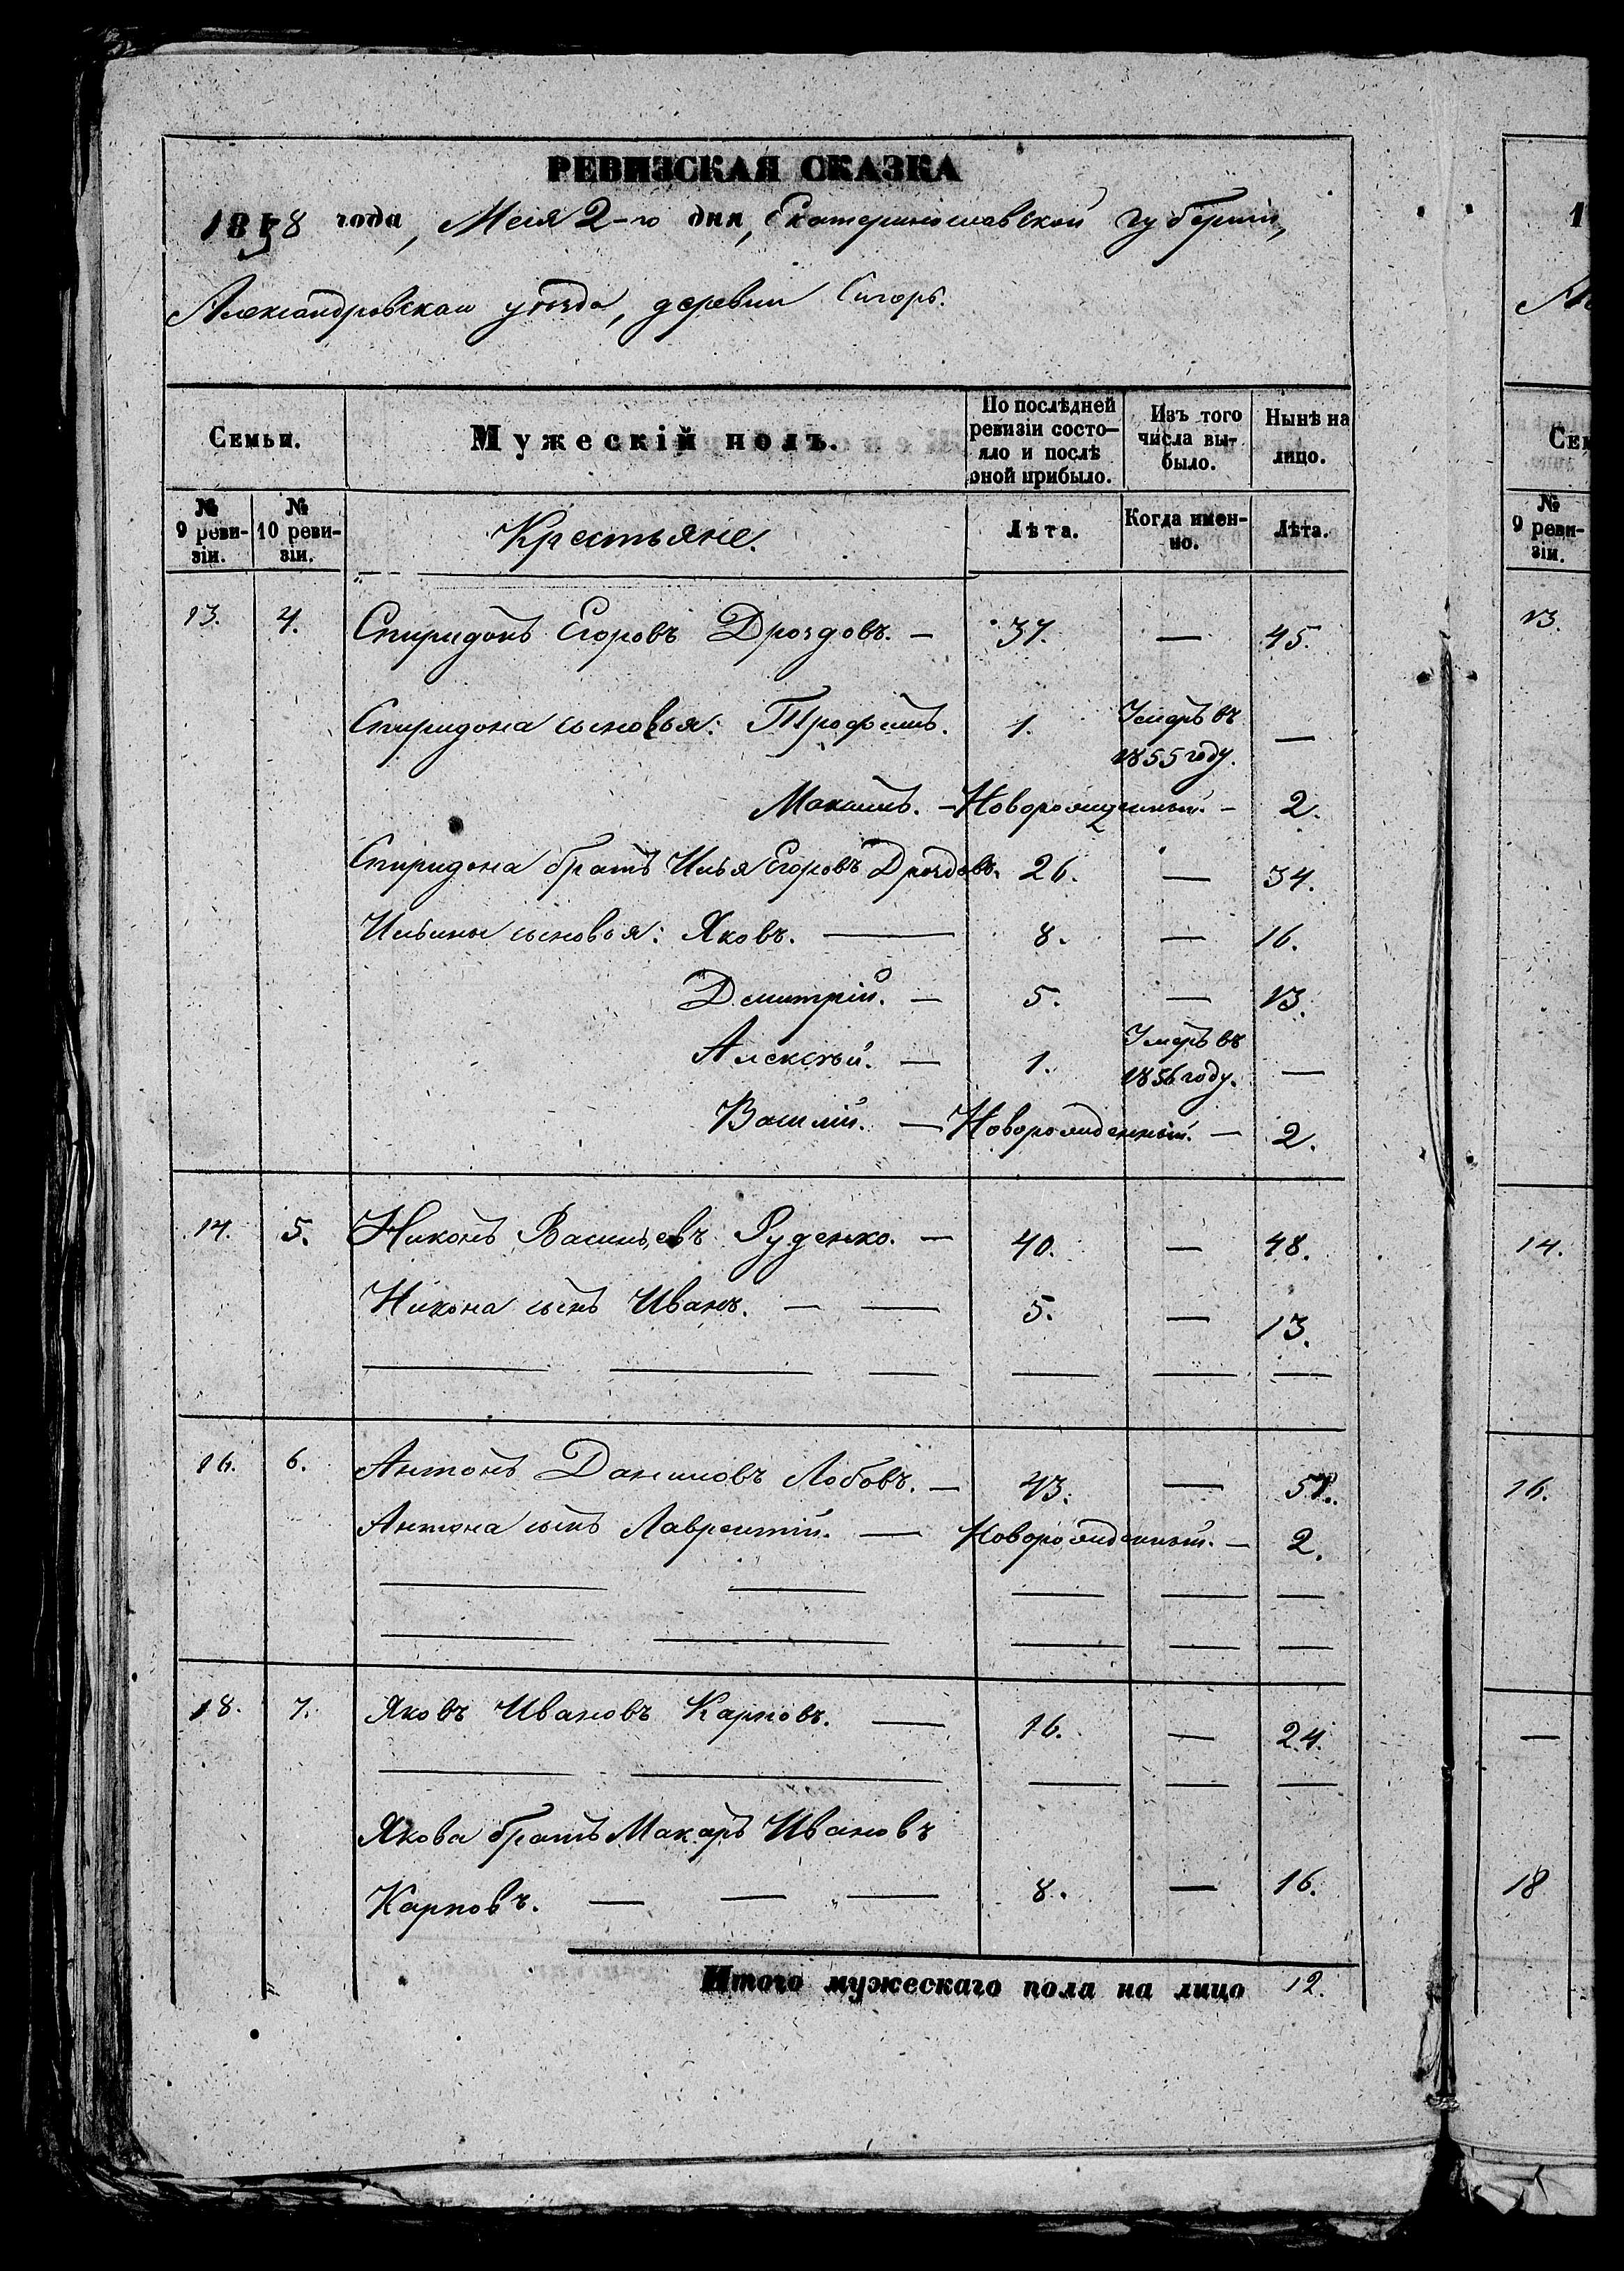 РЕВИЗСКАЯ СКАЗКА
1858 года, Мая 2-го дня, Екатеринославской губерніи,
Александровскаго уѣзда, деревни
Семьи.
Мужескій полъ.
По послѣдней ревизіи состояло и послѣ оной прибыло.
Изъ того числа выбыло.
Нынѣ на лицо.
№ 9 ревизіи.
№ 10 ревизіи.
Крестьяне.
Лѣта.
Когда именно.
Лѣта.
13. 4. Спиридонъ Егоровъ Дроздовъ. — 37. — 45.
Спиридона сыновья: Трофимъ. 1. Умеръ въ 1855 году. —
Максимъ. — Новорожденный. — 2.
Спиридона братъ Илья Егоровъ Дроздовъ. 26. — 34.
Ильины сыновья: Яковъ. — 8. — 16.
Дмитрій. — 5. — 13.
Алексѣй. — 1. Умеръ въ 1856 году. —
Василій. — Новорожденный. — 2.
14. 5. Никонъ Васильевъ Руденко. — 40. — 48.
Никона сынъ Иванъ. — — 5. — 13.
16. 6. Антонъ Даниловъ Лобовъ. — 43. — 51.
Антона сынъ Лаврентій. — Новорожденный. — 2.
18. 7. Яковъ Ивановъ Карповъ. — 16. — 24.
Якова братъ Макаръ Ивановъ
Карповъ. — — — 8. — 16.
Итого мужескаго пола на лицо 12.
1
Сем
№ 9 ревизіи.
13.
14.
16.
—
18